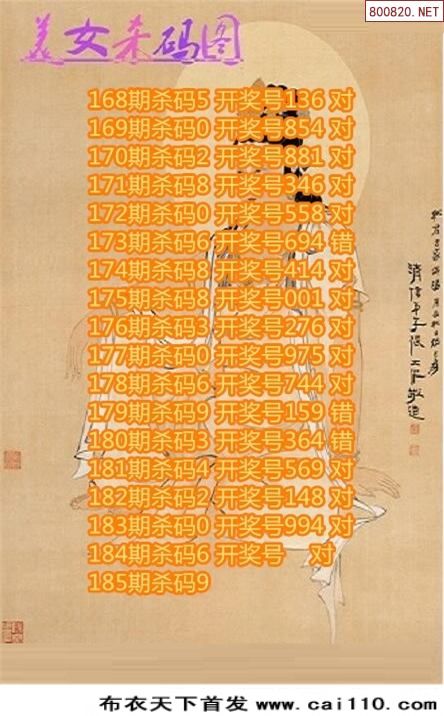 800820.NET
美女杀码图
168期杀码5 开奖号136 对
169期杀码0 开奖号854 对
170期杀码2 开奖号881 对
171期杀码8 开奖号346 对
172期杀码0 开奖号558 对
173期杀码6 开奖号694 错
174期杀码8 开奖号414 对
175期杀码8 开奖号001 对
176期杀码3 开奖号276 对
177期杀码0 开奖号975 对
178期杀码6 开奖号744 对
179期杀码9 开奖号159 错
180期杀码3 开奖号364 错
181期杀码4 开奖号569 对
182期杀码2 开奖号148 对
183期杀码0 开奖号994 对
184期杀码6 开奖号 对
185期杀码9
布衣天下首发 www.cai110.com